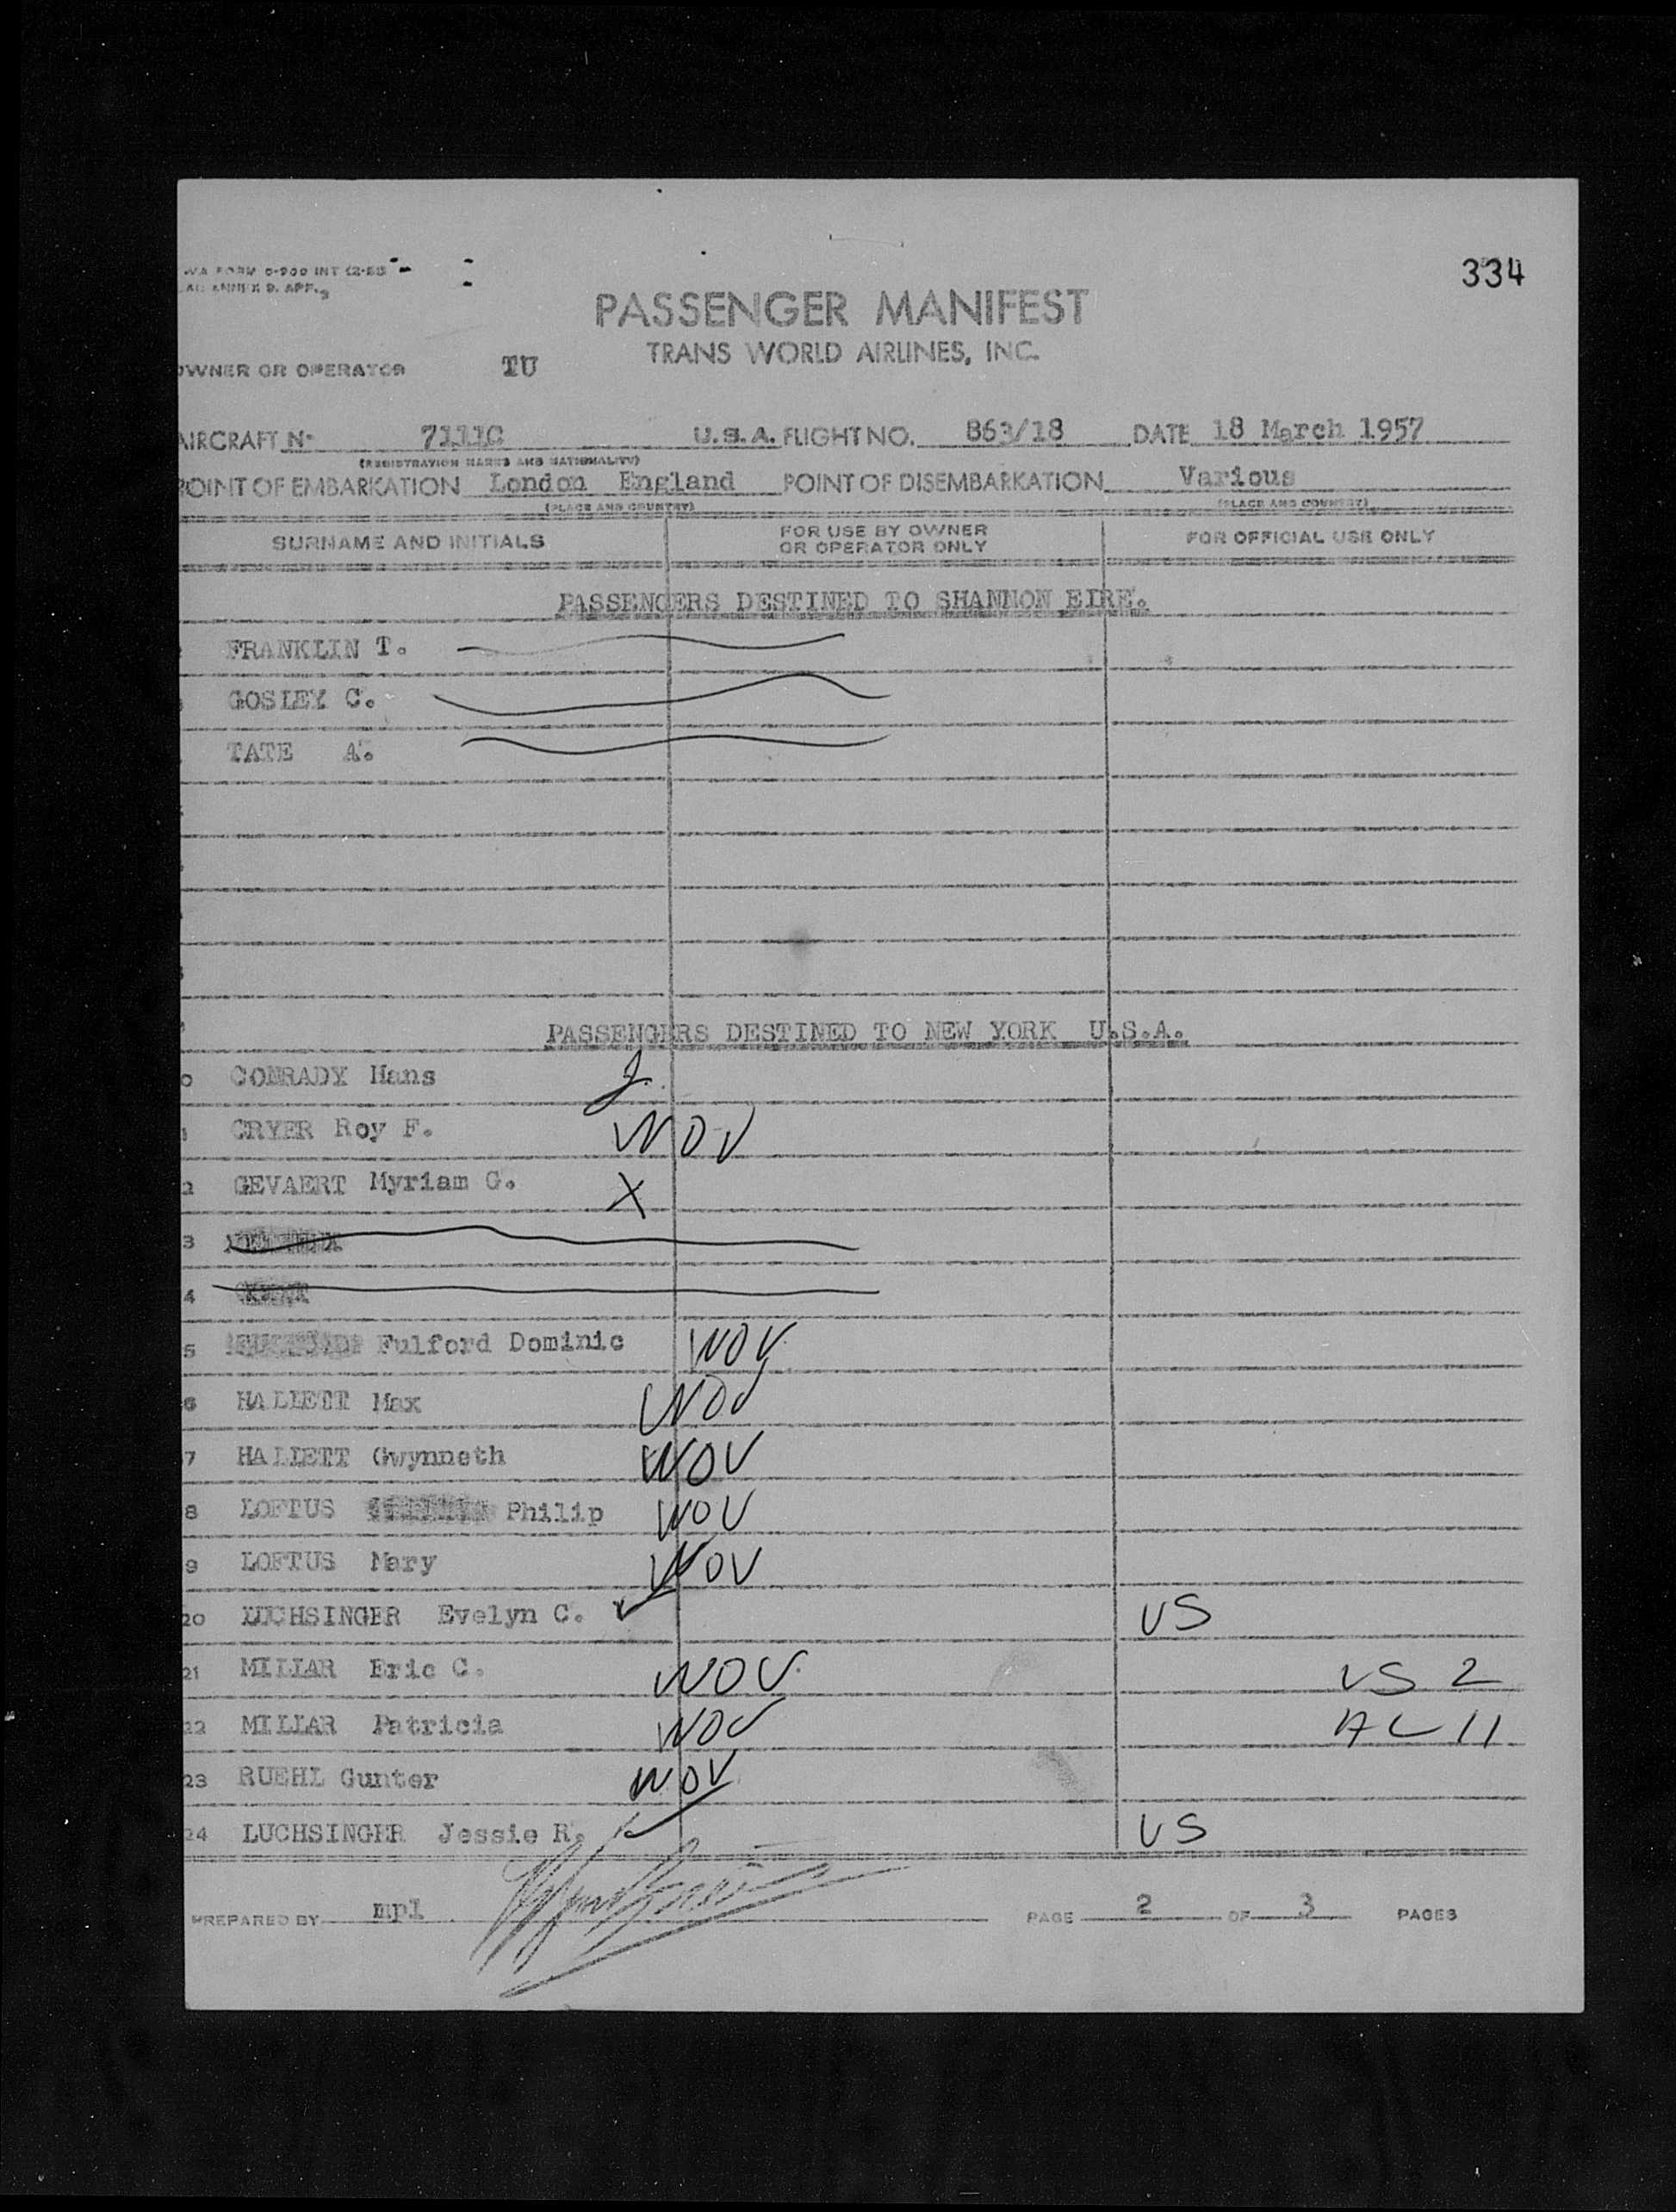 WA FORM 0-900 INT (2-53)
334
PASSENGER MANIFEST
TRANS WORLD AIRLINES, INC.
OWNER OR OPERATOR TU
AIRCRAFT No 7111C U.S.A. FLIGHT NO. 863/18 DATE 18 March 1957
(REGISTRATION MARKS AND NATIONALITY)
POINT OF EMBARKATION London England POINT OF DISEMBARKATION Various
(PLACE AND COUNTRY) (PLACE AND COUNTRY)
SURNAME AND INITIALS FOR USE BY OWNER OR OPERATOR ONLY FOR OFFICIAL USE ONLY
PASSENGERS DESTINED TO SHANNON EIRE.
FRANKLIN T.
GOSLEY C.
TATE A.
PASSENGERS DESTINED TO NEW YORK U.S.A.
0 CONRADY Hans
1 CRYER Roy F. WOV
2 GEVAERT Myriam G. X
3
4
5 Fulford Dominic WOV
6 HALLETT Max WOV
7 HALLETT Gwynneth WOV
8 LOFTUS Philip WOV
9 LOFTUS Mary WOV
20 LUCHSINGER Evelyn C. US
21 MILLAR Eric C. WOV US 2
22 MILLAR Patricia WOV AL 11
23 RUEHL Gunter WOV
24 LUCHSINGER Jessie R. US
PREPARED BY mpl PAGE 2 OF 3 PAGES